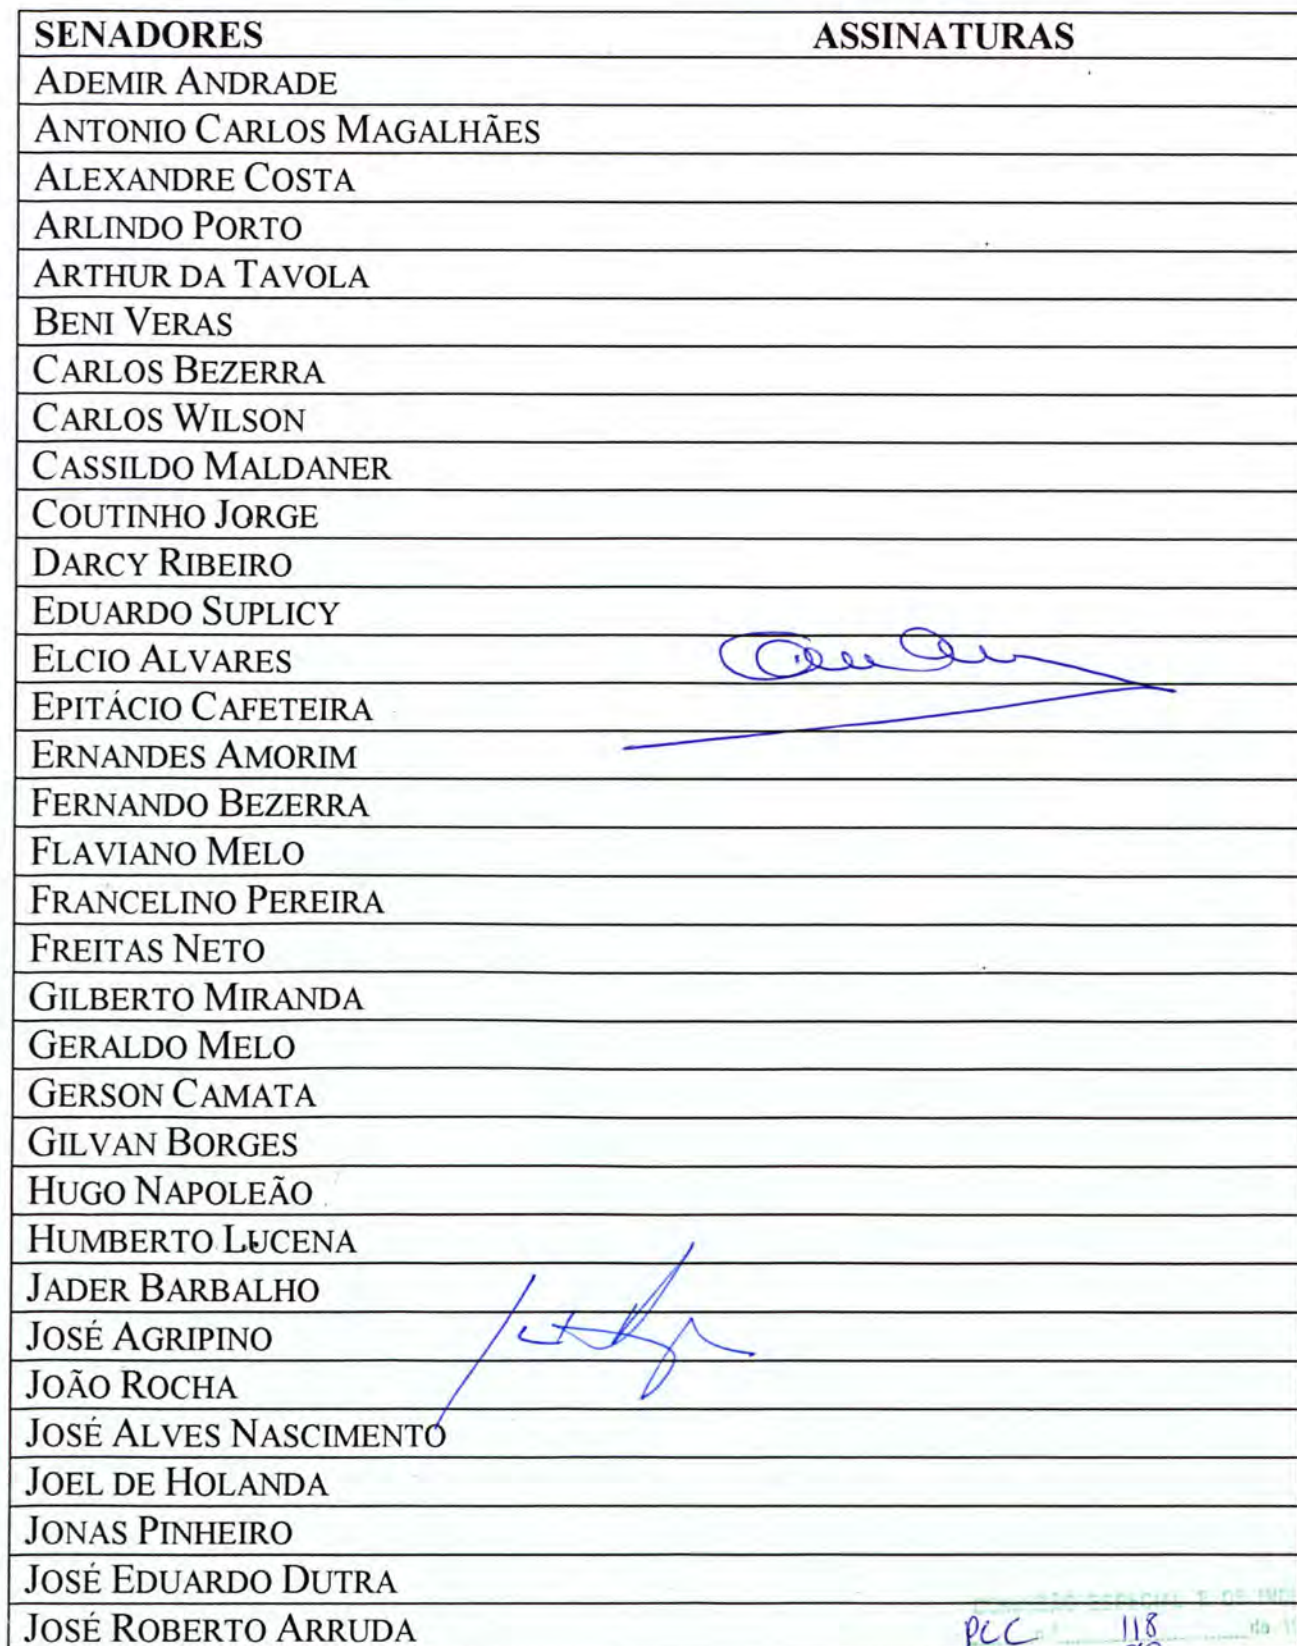 SENADORES ASSINATURAS
ADEMIR ANDRADE
ANTONIO CARLOS MAGALHÃES
ALEXANDRE COSTA
ARLINDO PORTO
ARTHUR DA TAVOLA
BENI VERAS
CARLOS BEZERRA
CARLOS WILSON
CASSILDO MALDANER
COUTINHO JORGE
DARCY RIBEIRO
EDUARDO SUPLICY
ELCIO ALVARES
EPITÁCIO CAFETEIRA
ERNANDES AMORIM
FERNANDO BEZERRA
FLAVIANO MELO
FRANCELINO PEREIRA
FREITAS NETO
GILBERTO MIRANDA
GERALDO MELO
GERSON CAMATA
GILVAN BORGES
HUGO NAPOLEÃO
HUMBERTO LUCENA
JADER BARBALHO
JOSÉ AGRIPINO
JOÃO ROCHA
JOSÉ ALVES NASCIMENTO
JOEL DE HOLANDA
JONAS PINHEIRO
JOSÉ EDUARDO DUTRA
ESPECIAL
JOSÉ ROBERTO ARRUDA PCC 118